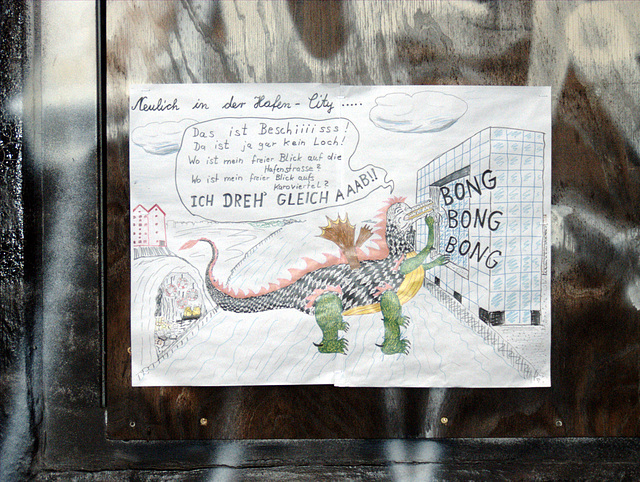 Neulich in der Hafen-City .....
Das ist Beschiiiisss!
Da ist ja gar kein Loch!
Wo ist mein freier Blick auf die
Hafenstrasse?
Wo ist mein freier Blick aufs
Karoviertel?
ICH DREH' GLEICH AAAB!!
BONG
BONG
BONG